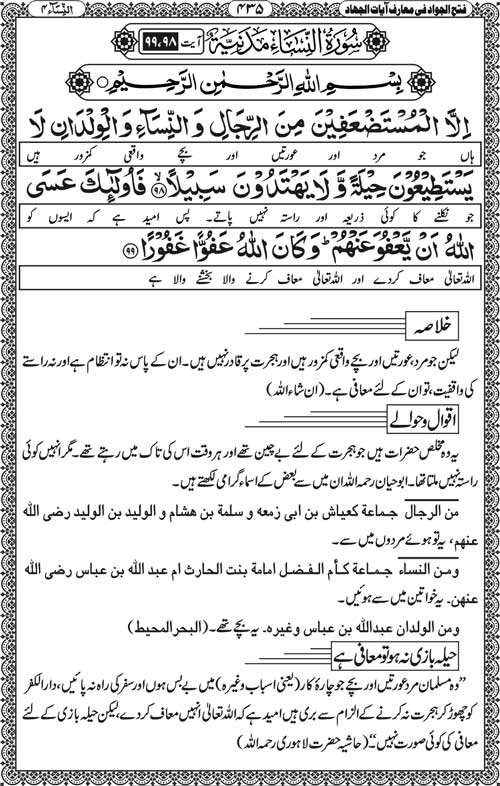 فتح الجواد فی معارف آیات الجہاد ۴۳۵ النِّسَاء ۴
سُورَةُ النِّسَاءِ مَدَنِيَّةٌ آیت ۹۹،۹۸
بِسْمِ اللهِ الرَّحْمٰنِ الرَّحِيْمِ
اِلَّا الْمُسْتَضْعَفِيْنَ مِنَ الرِّجَالِ وَالنِّسَآءِ وَالْوِلْدَانِ لَا
ہاں جو مرد اور عورتیں اور بچے واقعی کمزور ہیں
يَسْتَطِيْعُوْنَ حِيْلَةً وَّ لَا يَهْتَدُوْنَ سَبِيْلًا ۹۸ فَاُولٰٓئِكَ عَسَى
جو نکلنے کا کوئی ذریعہ اور راستہ نہیں پاتے۔ پس امید ہے کہ ایسوں کو
اللهُ اَنْ يَّعْفُوَ عَنْهُمْ ؕ وَ كَانَ اللهُ عَفُوًّا غَفُوْرًا ۹۹
اللہ تعالیٰ معاف کردے اور اللہ تعالیٰ معاف کرنے والا بخشنے والا ہے
خلاصہ
لیکن جو مرد، عورتیں اور بچے واقعی کمزور ہیں اور ہجرت پر قادر نہیں ہیں۔ ان کے پاس نہ تو انتظام ہے اور نہ راستے
کی واقفیت، تو ان کے لئے معافی ہے۔ (ان شاء اللہ)
اقوال و حوالے
یہ وہ مخلص حضرات ہیں جو ہجرت کے لئے بے چین تھے اور ہر وقت اس کی تاک میں رہتے تھے۔ مگر انہیں کوئی
راستہ نہیں ملتا تھا۔ ابوحیان رحمہ اللہ ان میں سے بعض کے اسماء گرامی لکھتے ہیں۔
من الرجال جماعة كعياش بن ابی زمعه و سلمة بن هشام و الوليد بن الوليد رضی الله
عنهم، یہ تو ہوئے مردوں میں سے۔
ومن النساء جماعة كأم الفضل امامة بنت الحارث ام عبد الله بن عباس رضی الله
عنهن۔ یہ خواتین میں سے ہوئیں۔
ومن الولدان عبدالله بن عباس وغیره۔ یہ بچے تھے۔ (البحر المحیط)
حیلہ بازی نہ ہو تو معافی ہے
”وہ مسلمان مرد عورتیں اور بچے جو چارۂ کار (یعنی اسباب وغیرہ) میں بے بس ہوں اور سفر کی راہ نہ پائیں، دارالکفر
کو چھوڑ کر ہجرت نہ کرنے کے الزام سے بری ہیں امید ہے کہ اللہ تعالیٰ انہیں معاف کردے، لیکن حیلہ بازی کے لئے
معافی کی کوئی صورت نہیں“۔ (حاشیہ حضرت لاہوری رحمہ اللہ)